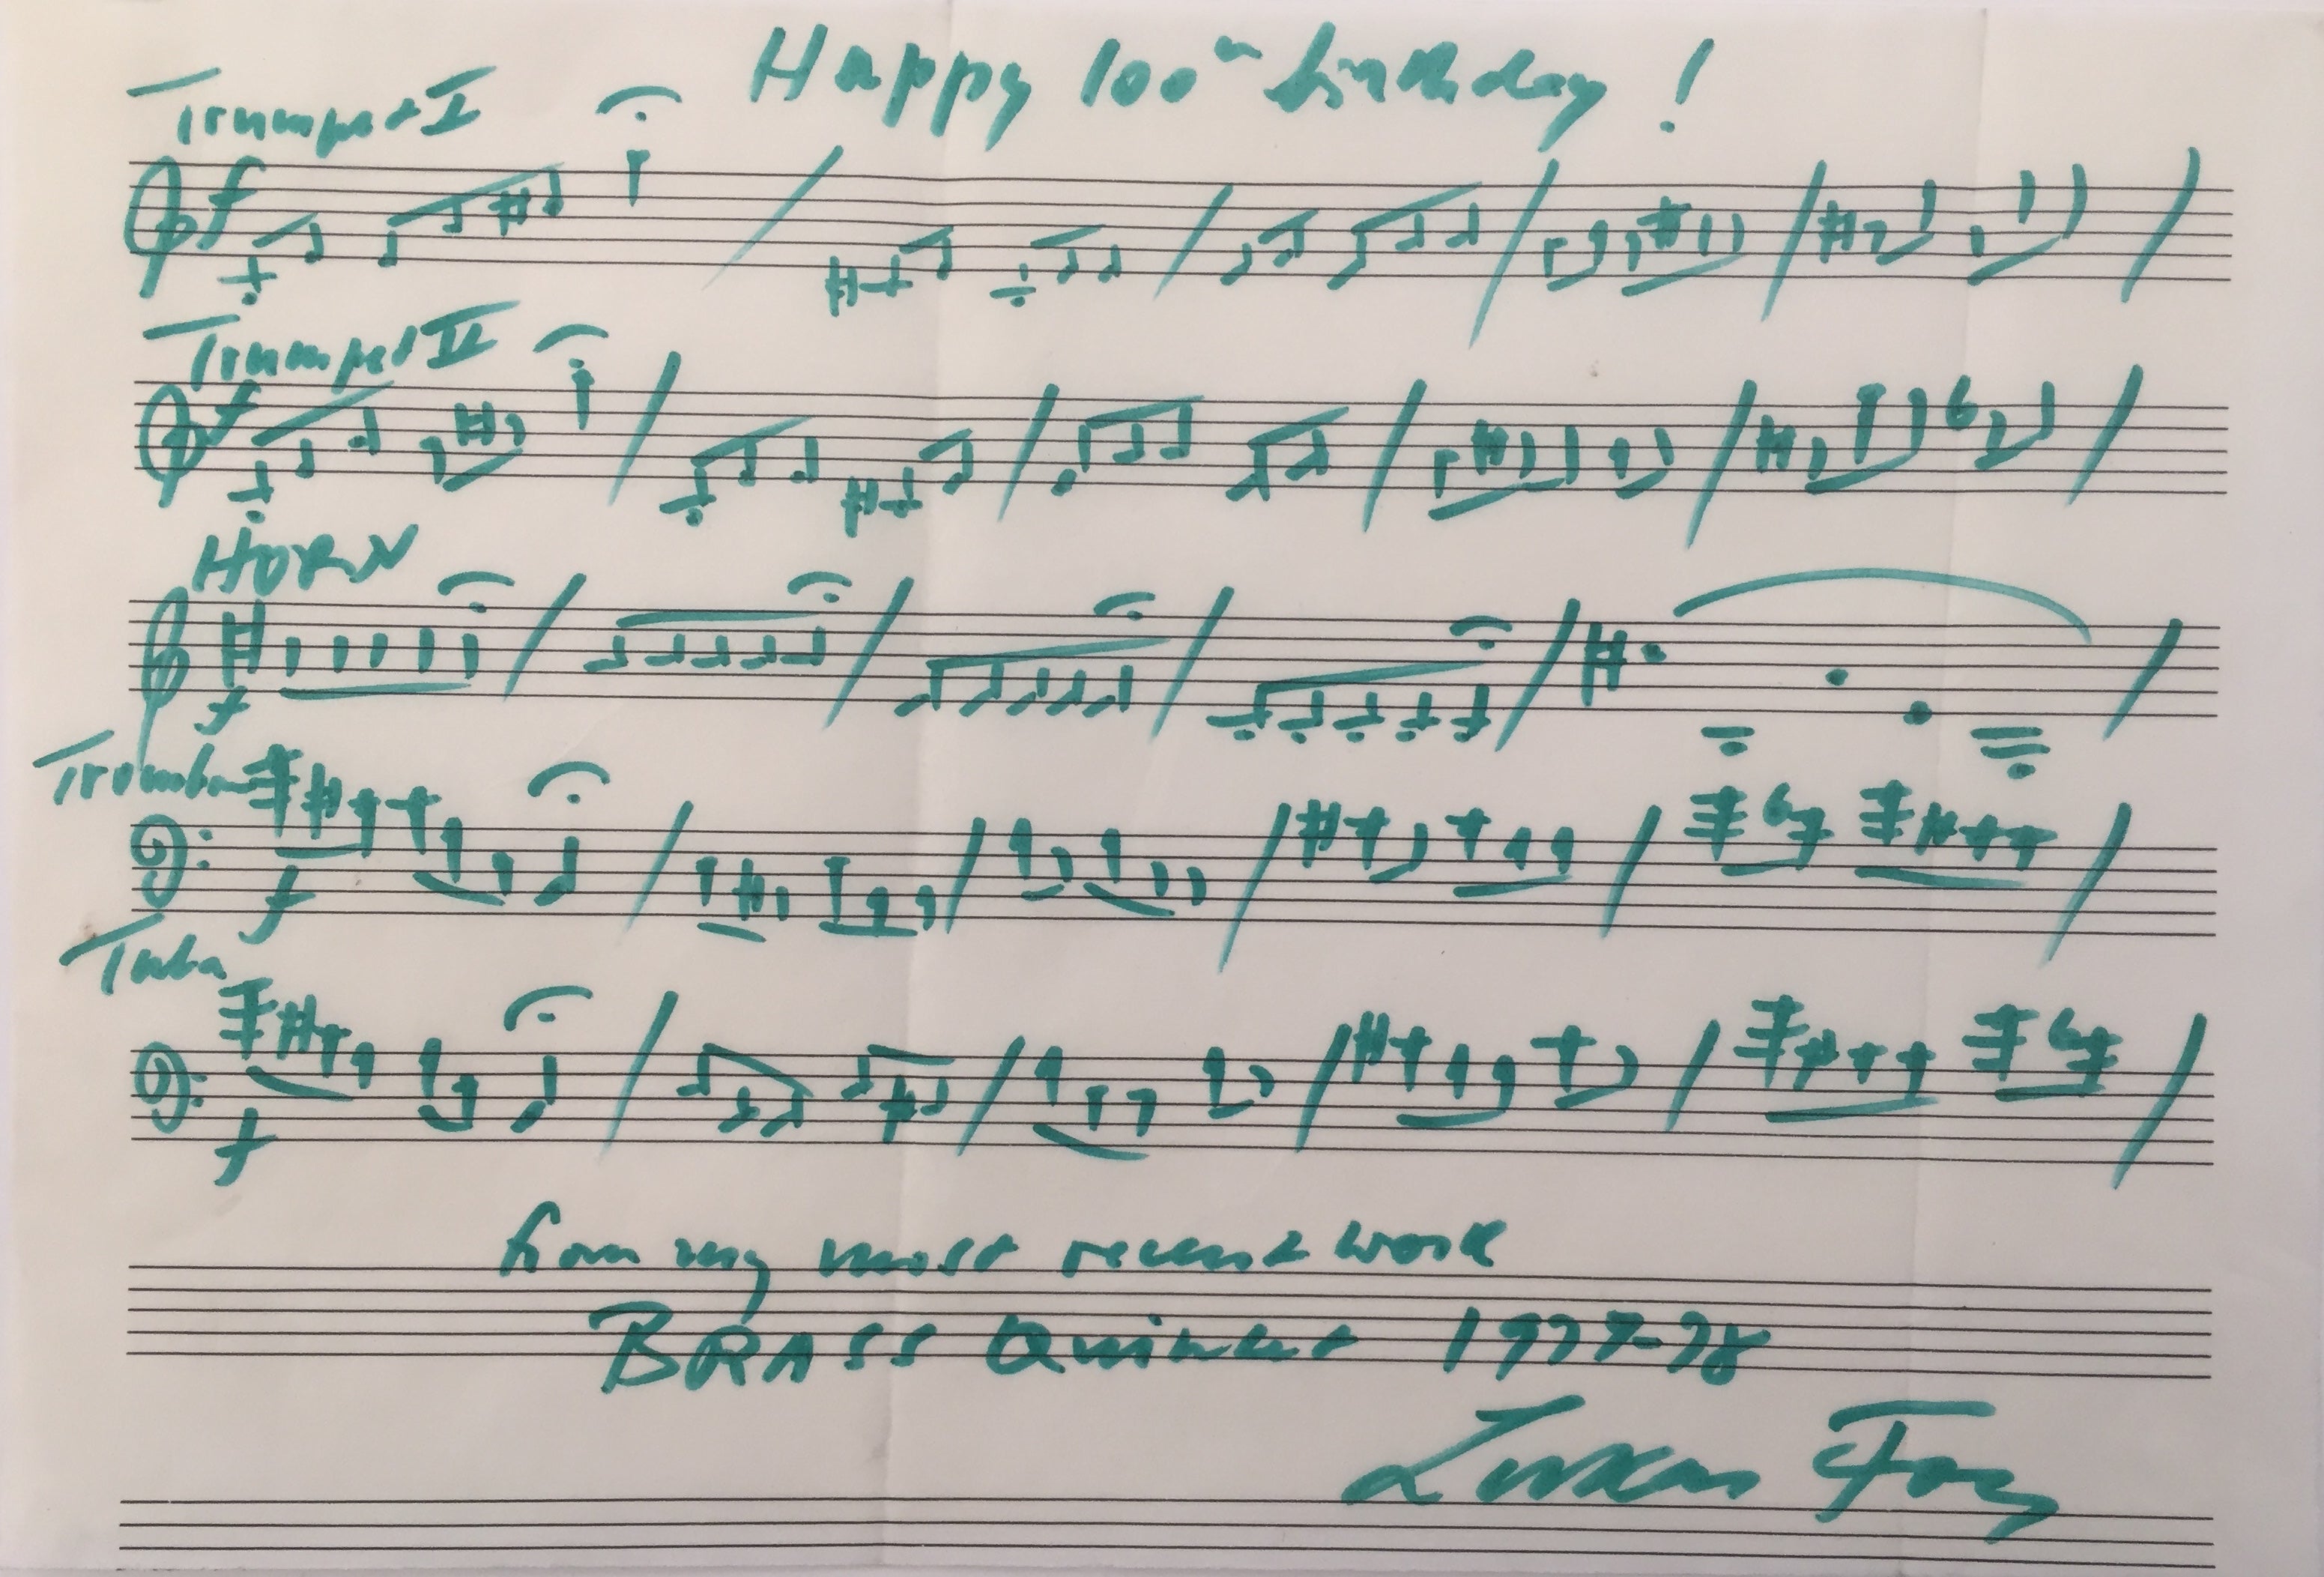 Happy 100th birthday!
Trumpet I
f
Trumpet II
f
HORN
f
Trombone
f
Tuba
f
from my most recent work
BRASS Quintet 1977-78
Lukas Foss